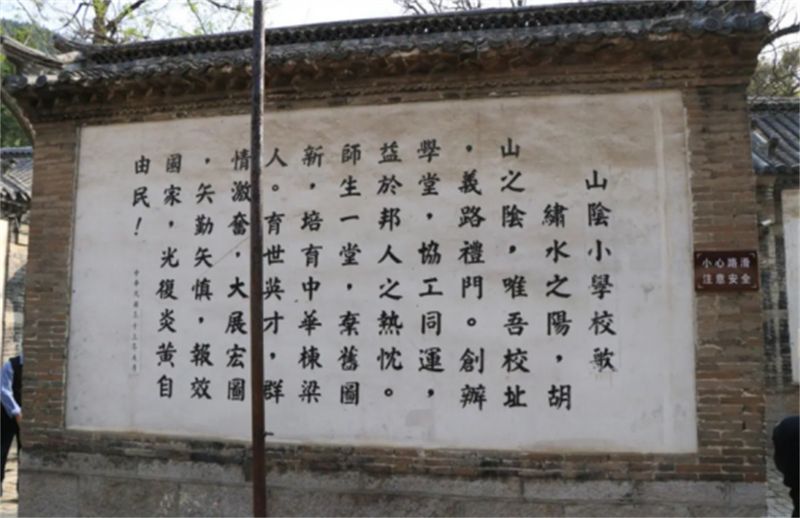 山陰小學校敏
繡水之陽，胡
山之陰，唯吾校址
，義路禮門。創辦
學堂，協工同運，
益於邦人之熱忱。
師生一堂，棄舊圖
新，培育中華棟梁
人。育世英才，群
情激奮，大展宏圖
，矢勤矢慎，報效
國家，光復炎黃自
由民！
中華民國三十三年
小心路滑
注意安全